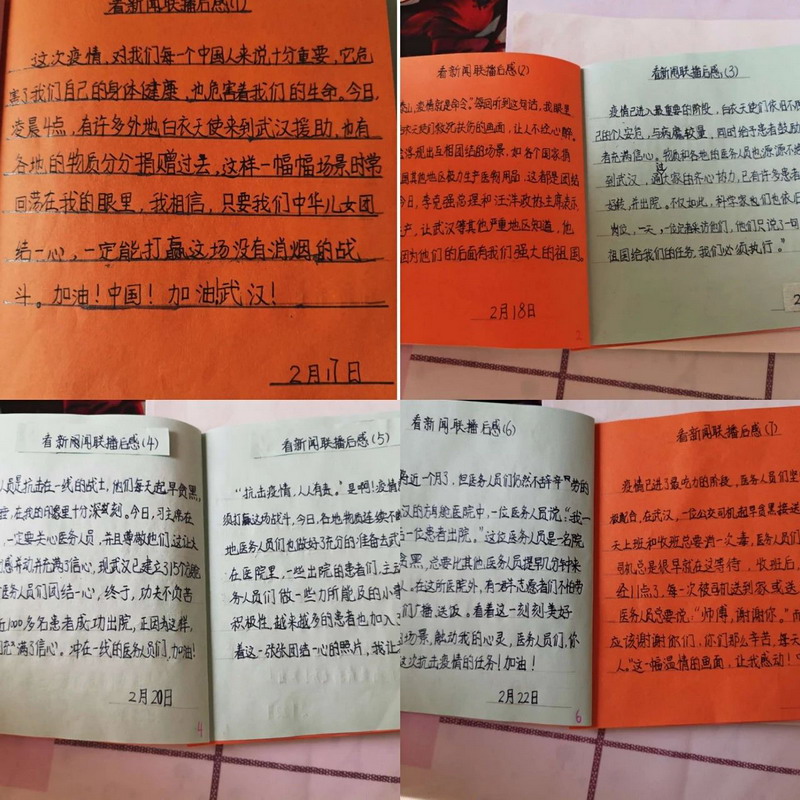 看新闻联播后感(1)
这次疫情,对我们每一个中国人来说十分重要,它危
害了我们自己的身体健康,也危害着我们的生命。今日,
凌晨4点,有许多外地白衣天使来到武汉援助,也有
各地的物质分分捐赠过去,这样一幅幅场景时常
回荡在我的眼里,我相信,只要我们中华儿女团
结一心,一定能打赢这场没有消烟的战
斗。加油!中国!加油!武汉!
2月17日
看新闻联播后感(2)
山,疫情就是命令。"每间听到这句话,我眼里
白衣天使们救死扶伤的画面,让人不经心醉。
浮现出互相团结的场景,如各个国家捐
国其他地区极力生产医物用品,这都是团结
今日,李克强总理和汪洋政协主席表示
产,让武汉等其他严重地区知道,他
因为他们的后面有我们强大的祖国。
2月18日
2
看新闻联播后感(3)
疫情已进入最重要的阶段,白衣天使们依旧不顾
己的个人安危,与病魔较量,同时给予患者鼓励
者充满信心。物质和各地的医务人员也源源不
到武汉,通过大家的齐心协力,已有许多患者
好转,并出院。不仅如此,科学家也们也依旧
岗位,一天,一位记者采访他们,他们只说了一句
祖国给我们的任务,我们必须执行。"
2
看新闻联播后感(4)
人员是抗击在一线的战士,他们每天起早贪黑,
在我的脑里十分深刻。今日,习主席在
一定要关心医务人员,并且尊敬他们这让大
感并动并充满了信心,现武汉已建立了15个方舱
医务人员们团结一心,终于,功夫不负苦
近1000多名患者成功出院,正因为这样,
充满了信心。冲在一线的医务人员们,加油!
2月20日
4
看新闻联播后感(5)
"抗击疫情,人人有责。"是啊!疫情
须打赢这场战斗,今日,各地物质连续不
地医务人员们也做好了充分的准备去武
在医院里,一些出院的患者们,主动
务人员们做一些力所能及的小事
积极性,越来越多的患者也加入了
看这一张张团结一心的照片,我让
看新闻联播后感(6)
近一个月了,但医务人员们仍然不古辛劳的
汉的方舟舱医院中,一位医务人员说:"我一
后一位患者出院。"这位医务人员是一名院
贪黑,总要比其他医务人员提早几分钟来
人。在这所医院外,有一群志愿者们不怕劳
们广播送饭。看着这一刻刻美好
场景,触动我的心灵,医务人员们,你
这次抗击疫情的任务!加油!
2月22日
6
看新闻联播后感(7)
疫情已进了最吃力的阶段,医务人员们坚
极配合,在武汉,一位公交司机起早贪黑接送
天上班和收班总要消一次毒,医务人员们
司机总是很早就在这等待,收班后,
经11点了,每一次被司机送到家或送
医务人员总要说:"师傅,谢谢你。"而
应该谢谢你们,你们那么辛苦,每天
人。"这一幅温情的画面,让我感动!